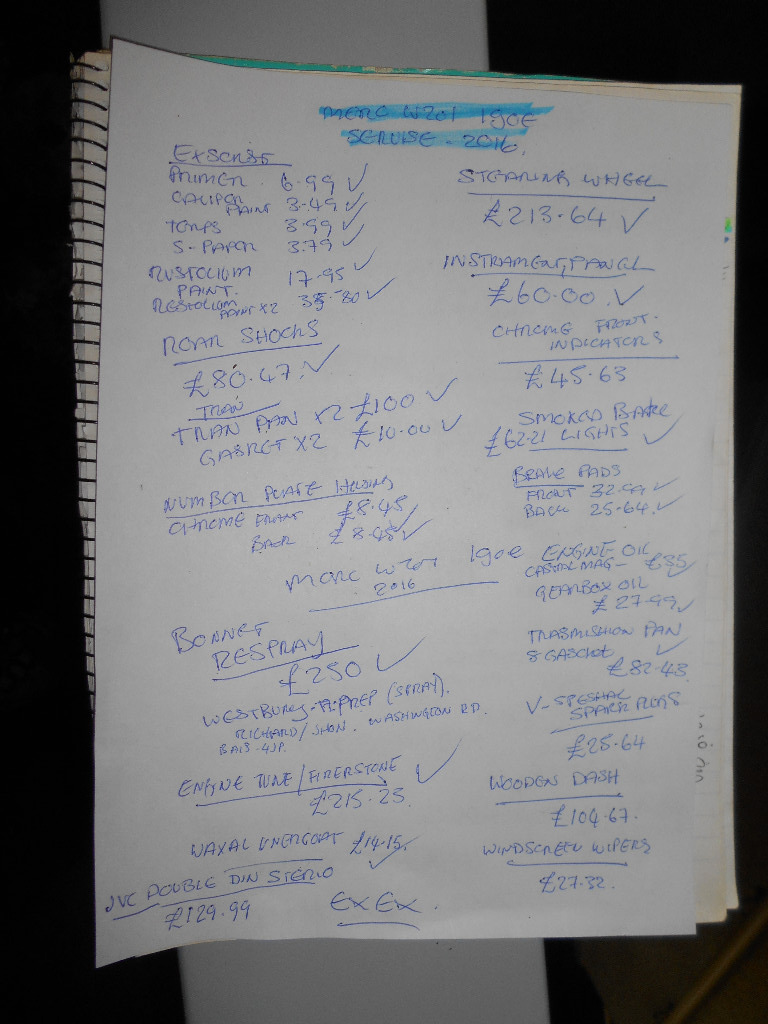 MERC W201 190E
SERVISE - 2016.
EXSORST
PRIMER 6.99 ✓
CALIPER PAINT 3.49 ✓
3.99 ✓
S-PAPER 3.79 ✓
RUSTOLIUM PAINT. 17.95 ✓
RESTOLIUM PAINT X2 35.80 ✓
ROAR SHOCKS
£80.47. ✓
TRAN
TRAN PAN X2 £100 ✓
GASKET X2 £10.00 ✓
NUMBER PLATE HOLDING
CHROME FRONT £8.45 ✓
BACK £8.45 ✓
MERC W201 190E
2016
BONNET
RESPRAY
£250 ✓
WESTBURY-PREP (SPRAY).
RICHARD/JHON. WASHINGTON RD.
BA13-4JP.
ENGINE TUNE/FIRERSTONE ✓
£215.23.
WAXAL UNERCOAT £14.15. ✓
JVC DOUBLE DIN STERIO
£129.99
EX EX.
STEARING WHEEL
£213.64 ✓
INSTRAMENT, PANEL
£60.00. ✓
CHROME FRONT.
INDICATORS
£45.63
SMOKED BAKE
£62.21 LIGHTS ✓
BRAKE PADS
FRONT 32.99 ✓
BACK 25.64. ✓
ENGINE OIL
CASTAL MAG- £35 ✓
GEARBOX OIL
£27.99 ✓
TRASMISHION PAN
& GASCKET ✓
£82.43.
V-SPESHAL
SPARK PLUGS
£25.64
WOODEN DASH
£104.67.
WINDSCREEN WIPERS
£27.32.